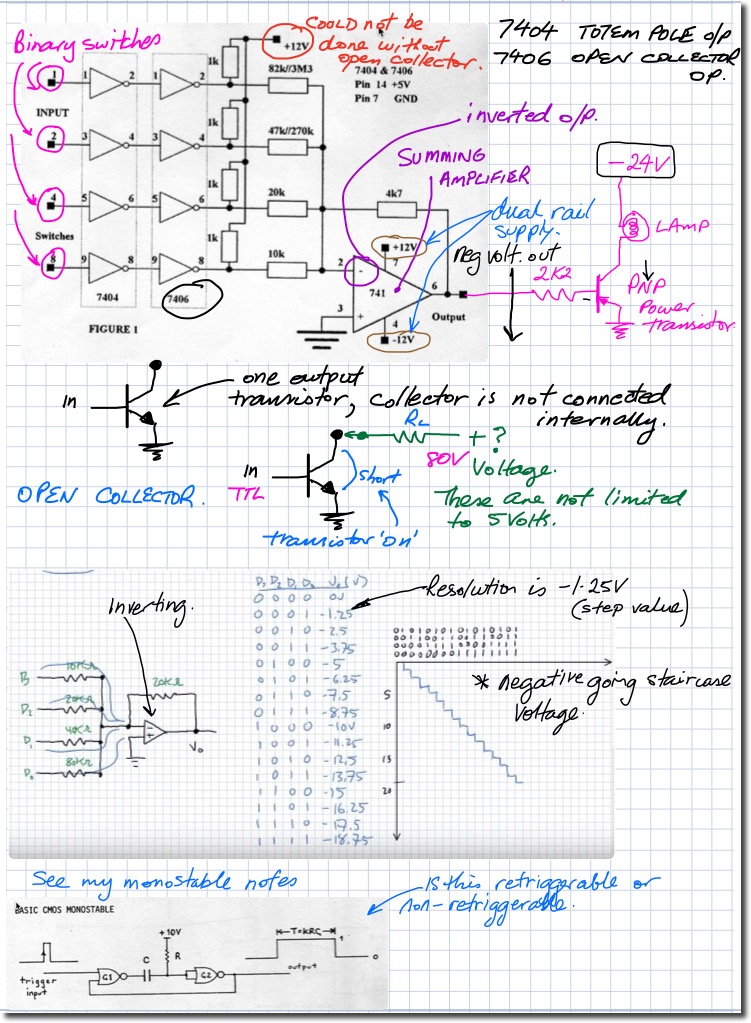 COOLD not be
done without
open collector.
7404 TOTEM POLE O/P
7406 OPEN COLLECTOR
OP.
Binary switches
+12V
1k
82k//3M3
7404 & 7406
Pin 14 +5V
Pin 7 GND
1
1
2
1
2
INPUT
1k
47k//270k
2
3
4
3
4
inverted o/p.
SUMMING
AMPLIFIER
-24V
1k
20k
4k7
4
5
6
5
6
dual rail
supply.
LAMP
Switches
1k
10k
+12V
neg volt. out
8
9
8
9
8
2
-
7
741
6
2K2
PNP
Power
transistor.
7404
7406
3
+
4
Output
-12V
FIGURE 1
In
one output
transistor, collector is not connected
internally.
RL
+ ?
80V
Voltage.
In
TTL
short
OPEN COLLECTOR.
These are not limited
to 5 Volts.
transistor 'on'
Inverting.
D3 D2 D1 D0 Vo (V)
0 0 0 0 0V
0 0 0 1 -1.25
0 0 1 0 -2.5
0 0 1 1 -3.75
0 1 0 0 -5
0 1 0 1 -6.25
0 1 1 0 -7.5
0 1 1 1 -8.75
1 0 0 0 -10V
1 0 0 1 -11.25
1 0 1 0 -12.5
1 0 1 1 -13.75
1 1 0 0 -15
1 1 0 1 -16.25
1 1 1 0 -17.5
1 1 1 1 -18.75
Resolution is -1.25V
(step value)
5
10
15
20
* negative going staircase
voltage.
10KΩ
20KΩ
D2
20KΩ
D1
40KΩ
D0
80KΩ
Vo
See my monostable notes
Is this retriggerable or
non-retriggerable.
BASIC CMOS MONOSTABLE
+10V
T=KRC
1
0
C
R
G1
G2
output
trigger
input